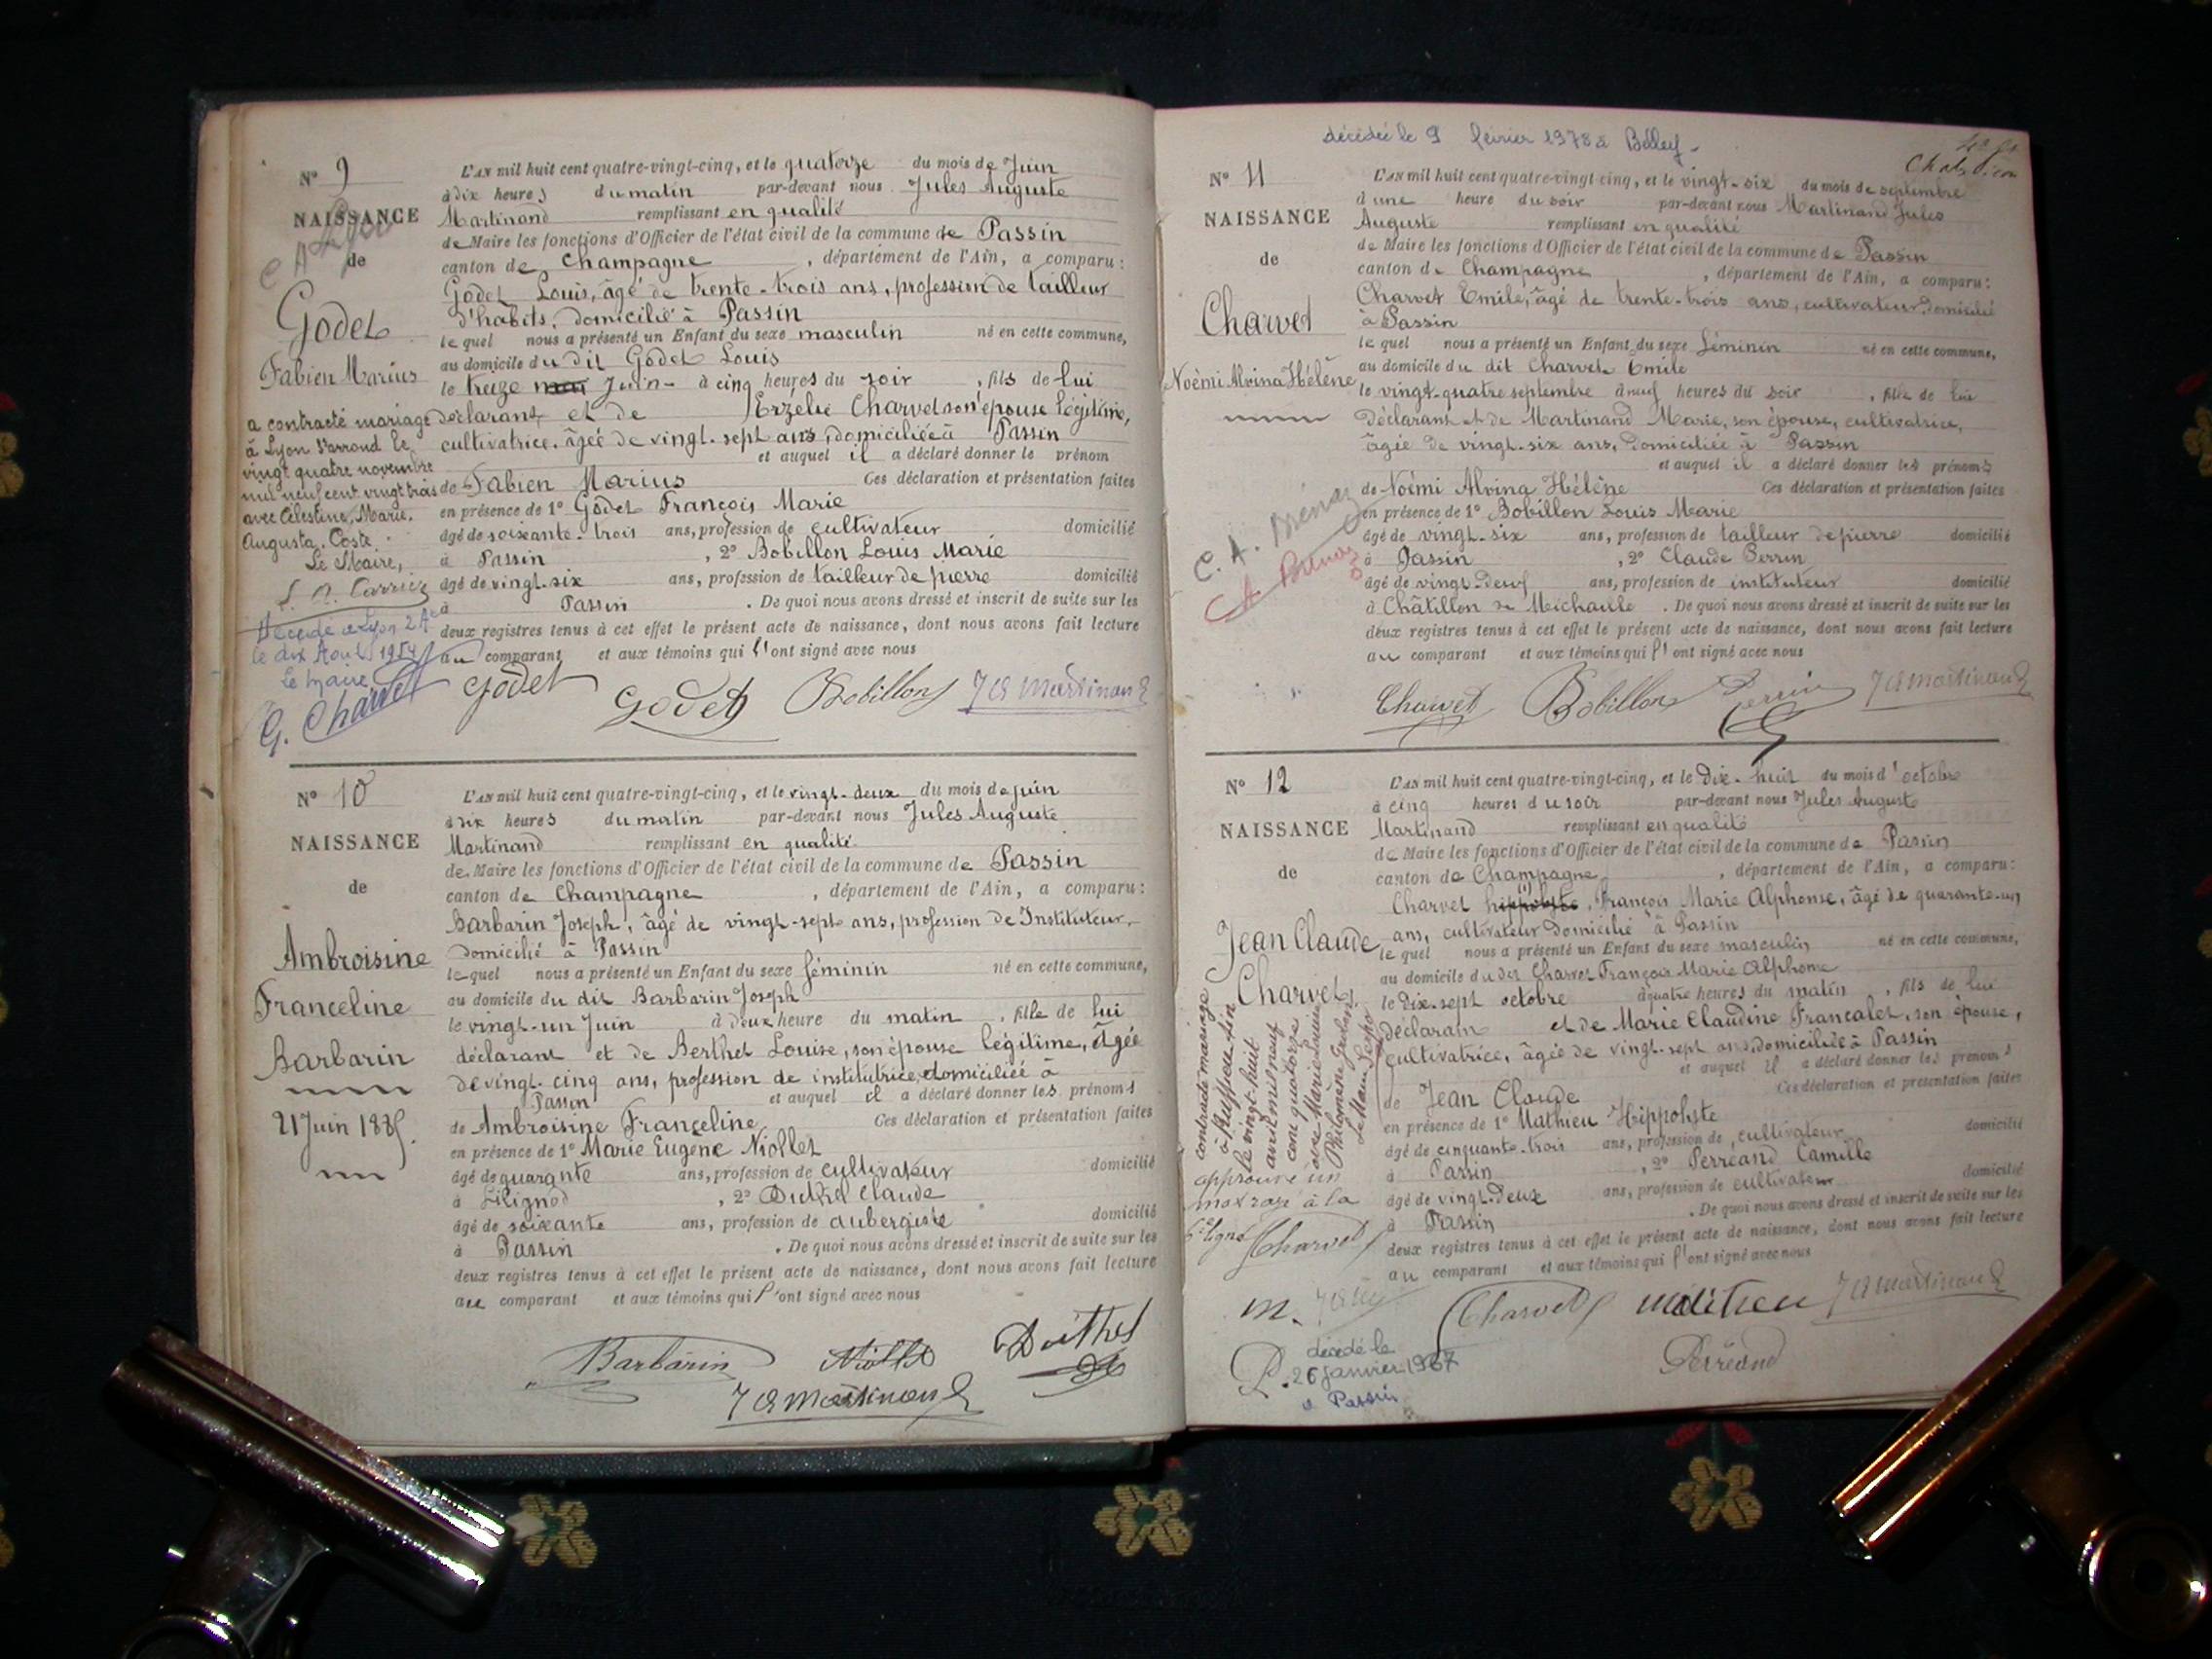 N° 9
NAISSANCE
de
Godet
Fabien Marius
a contracté mariage
à Lyon arrond le
vingt quatre novembre
mil neuf cent vingt trois
avec Célestine, Marie,
Augusta, Coste
Le Maire,
Décédé à Lyon 2
le dix Août 1954
Le Maire
G. Charvet
L'AN mil huit cent quatre-vingt-cinq, et le quatorze du mois de Juin
à dix heures du matin par-devant nous Jules Auguste
Martinand remplissant en qualité
de Maire les fonctions d'Officier de l'état civil de la commune de Passin
canton de Champagne, département de l'Ain, a comparu:
Godet Louis, âgé de trente-trois ans, profession de tailleur
d'habits, domicilié à Passin
lequel nous a présenté un Enfant du sexe masculin né en cette commune,
au domicile du dit Godet Louis
le treize mai Juin - à cinq heures du soir, fils de lui
déclarant et de Erzélie Charvet son épouse légitime,
cultivatrice, âgée de vingt-sept ans, domiciliée à Passin
et auquel il a déclaré donner le prénom
de Fabien Marius Ces déclaration et présentation faites
en présence de 1° Godet François Marie
âgé de soixante-trois ans, profession de cultivateur domicilié
à Passin, 2° Bobillon Louis Marie
âgé de vingt-six ans, profession de tailleur de pierre domicilié
à Passin. De quoi nous avons dressé et inscrit de suite sur les
deux registres tenus à cet effet le présent acte de naissance, dont nous avons fait lecture
au comparant et aux témoins qui l'ont signé avec nous
Godet Godet Bobillon J A Martinand
N° 10
NAISSANCE
de
Ambroisine
Franceline
Barbarin
21 Juin 1885.
L'AN mil huit cent quatre-vingt-cinq, et le vingt-deux du mois de juin
à dix heures du matin par-devant nous Jules Auguste
Martinand remplissant en qualité
de Maire les fonctions d'Officier de l'état civil de la commune de Passin
canton de Champagne, département de l'Ain, a comparu:
Barbarin Joseph, âgé de vingt-sept ans, profession de Instituteur,
domicilié à Passin
lequel nous a présenté un Enfant du sexe féminin né en cette commune,
au domicile du dit Barbarin Joseph
le vingt-un Juin à deux heure du matin, fille de lui
déclarant et de Berthet Louise, son épouse légitime, âgée
de vingt-cinq ans, profession de institutrice, domiciliée à
Passin et auquel il a déclaré donner les prénoms
de Ambroisine Franceline Ces déclaration et présentation faites
en présence de 1° Marie Eugène Niollet
âgé de quarante ans, profession de cultivateur domicilié
à Lilignod, 2° Duthel Claude
âgé de soixante ans, profession de aubergiste domicilié
à Passin. De quoi nous avons dressé et inscrit de suite sur les
deux registres tenus à cet effet le présent acte de naissance, dont nous avons fait lecture
au comparant et aux témoins qui l'ont signé avec nous
Barbarin Niollet Duthel
J A Martinand
décédée le 9 février 1978 à Belley
N° 11
NAISSANCE
de
Charvet
Noèmi Alvina Hélène
C. A. Brénaz
L'AN mil huit cent quatre-vingt cinq, et le vingt-six du mois de septembre
à une heure du soir par-devant nous Martinand Jules
Auguste remplissant en qualité
de Maire les fonctions d'Officier de l'état civil de la commune de Passin
canton de Champagne, département de l'Ain, a comparu:
Charvet Emile, âgé de trente-trois ans, cultivateur, domicilié
à Passin
lequel nous a présenté un Enfant du sexe féminin né en cette commune,
au domicile du dit Charvet Emile
le vingt-quatre septembre à neuf heures du soir, fille de lui
déclarant et de Martinand Marie, son épouse, cultivatrice,
âgée de vingt-six ans, domiciliée à Passin
et auquel il a déclaré donner les prénoms
de Noèmi Alvina Hélène Ces déclaration et présentation faites
en présence de 1° Bobillon Louis Marie
âgé de vingt-six ans, profession de tailleur de pierre domicilié
à Passin, 2° Claude Perrin
âgé de vingt-neuf ans, profession de instituteur domicilié
à Châtillon de Michaille. De quoi nous avons dressé et inscrit de suite sur les
deux registres tenus à cet effet le présent acte de naissance, dont nous avons fait lecture
au comparant et aux témoins qui l'ont signé avec nous
Charvet Bobillon Perrin J A Martinand
N° 12
NAISSANCE
de
Jean Claude
Charvet
le vingt-huit
avril mil neuf
cent quatorze
approuvé un
mot rayé à la
6e ligne
Charvet
décédé le
26 janvier 1967
à Passin
L'AN mil huit cent quatre-vingt-cinq, et le dix-huit du mois d'octobre
à cinq heures du soir par-devant nous Jules Auguste
Martinand remplissant en qualité
de Maire les fonctions d'Officier de l'état civil de la commune de Passin
canton de Champagne, département de l'Ain, a comparu:
Charvet hippolyte, François Marie Alphonse, âgé de quarante-un
ans, cultivateur domicilié à Passin
lequel nous a présenté un Enfant du sexe masculin né en cette commune,
au domicile du dit Charvet François Marie Alphonse
le dix-sept octobre à quatre heures du matin, fils de lui
déclarant et de Marie Claudine Francalet, son épouse,
cultivatrice, âgée de vingt-sept ans, domiciliée à Passin
et auquel il a déclaré donner les prénoms
de Jean Claude Ces déclaration et présentation faites
en présence de 1° Mathieu Hippolyte
âgé de cinquante-trois ans, profession de cultivateur domicilié
à Passin, 2° Perréand Camille
âgé de vingt-deux ans, profession de cultivateur domicilié
à Passin. De quoi nous avons dressé et inscrit de suite sur les
deux registres tenus à cet effet le présent acte de naissance, dont nous avons fait lecture
au comparant et aux témoins qui l'ont signé avec nous
Charvet Mathieu J A Martinand
Perréand